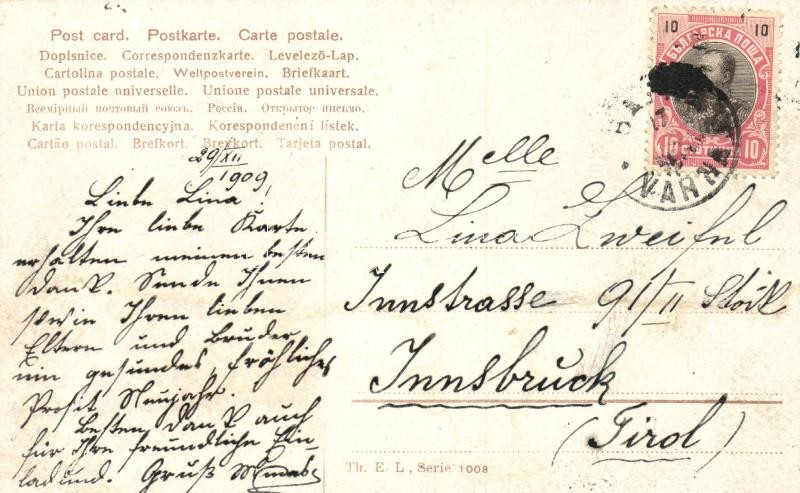 Post card. Postkarte. Carte postale.
Dopisnice. Correspondenzkarte. Levelező-Lap.
Cartolina postale. Weltpostverein. Briefkaart.
Union postale universelle. Unione postale universale.
Всемірный почтовый союзъ. Россія. Открытое письмо.
Karta korespondencyjna. Korespondenční lístek.
Cartão postal. Brefkort. Brevkort. Tarjeta postal.
29/XII
1909!
Liebe Lina!
Ihre liebe Karte
erhalten meinen besten
Dank. Sende Ihnen
sowie Ihren lieben
Eltern und Bruder
ein gesundes, fröhliches
Prosit Neujahr.
Besten Dank auch
für Ihre freundliche Ein-
ladung. Gruß
10 10
БЪЛГАРСКА ПОЩА
10 СТОТИНКИ 10
VARNA
Melle
Lina Zweifel
Innstrasse 91/II Stock
Innsbruck
(Tirol)
Th. E. L., Serie 1008